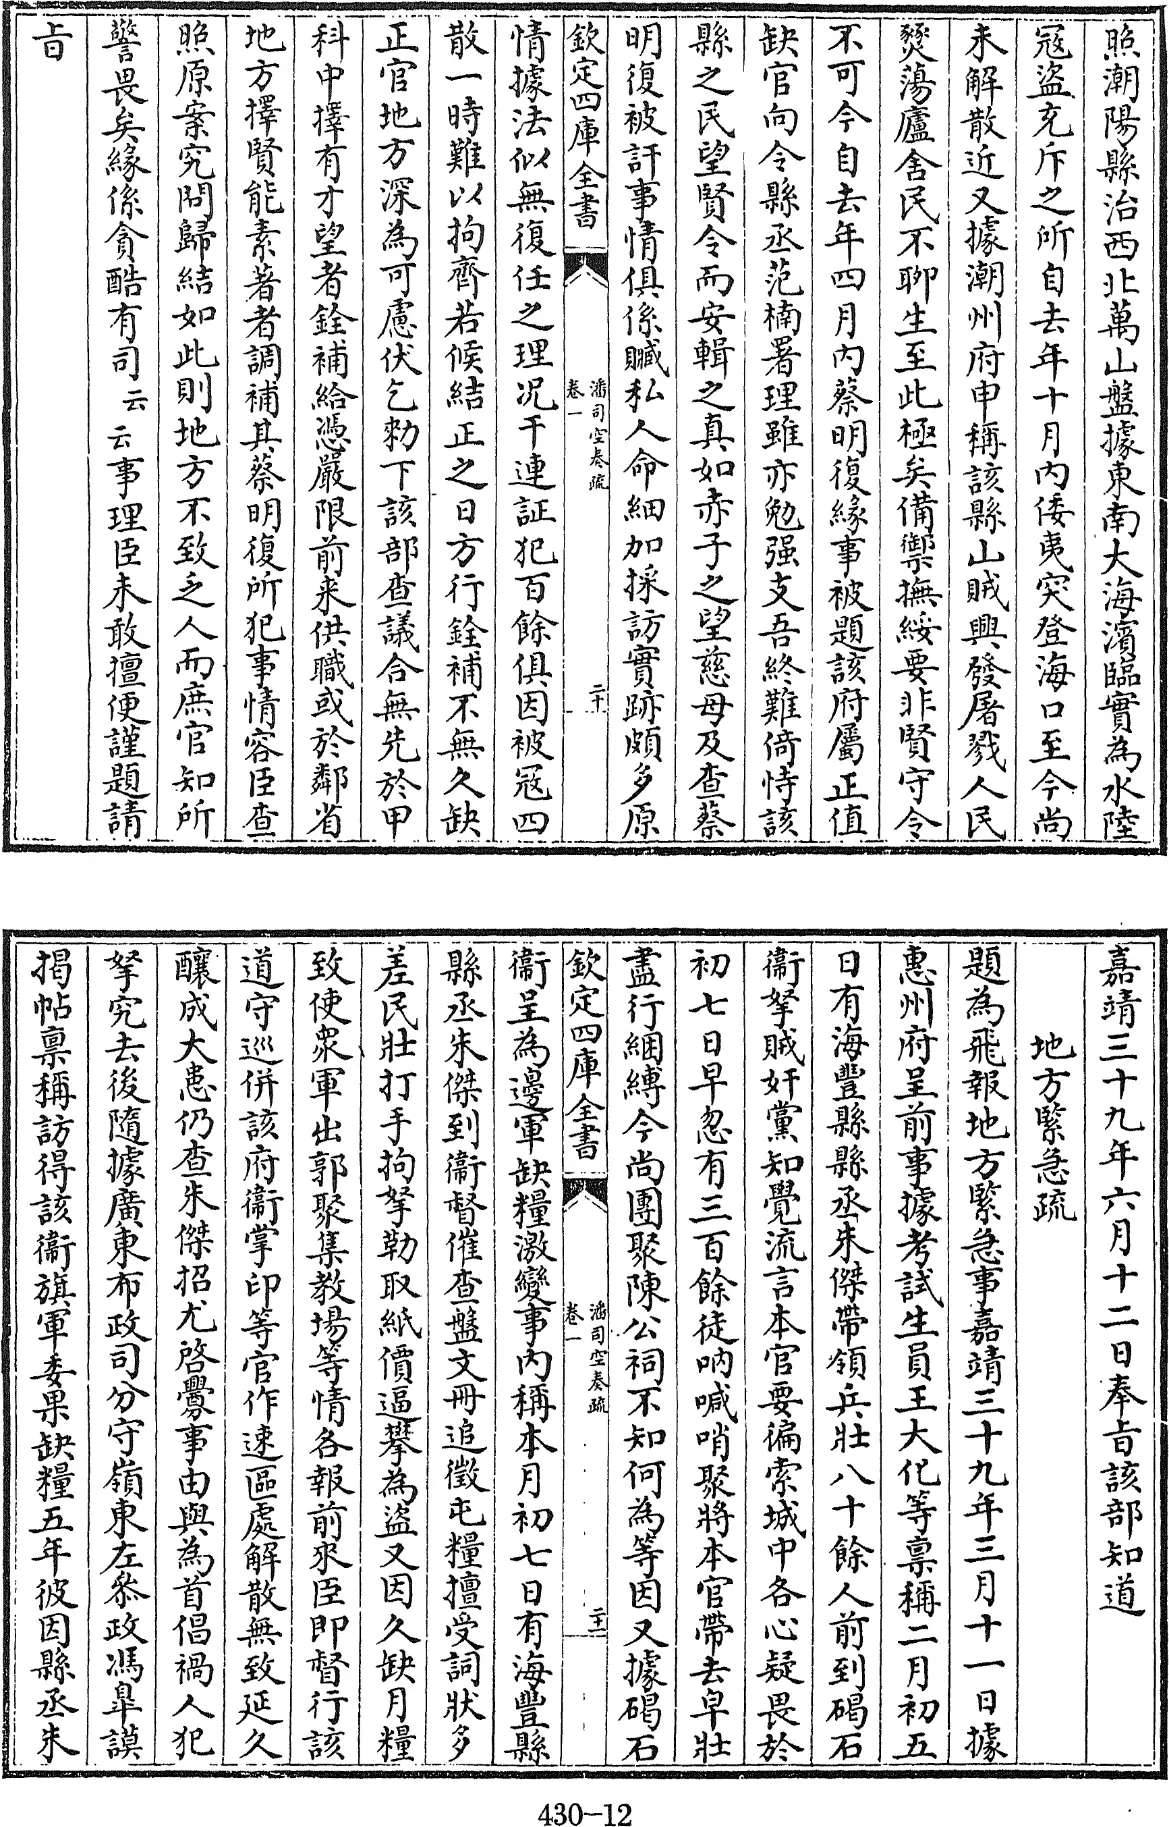 照潮陽縣治西北萬山盤據東南大海濱臨實為水陸
冦盜充斥之所自去年十月内倭夷突登海口至今尚
未解散近又據潮州府申稱該縣山賊興發屠戮人民
燹蕩廬舍民不聊生至此極矣備禦撫綏要非賢守令
不可今自去年四月内蔡明復緣事被題該府屬正值
缺官向令縣丞范楠署理雖亦勉强支吾終難倚恃該
縣之民望賢令而安輯之真如赤子之望慈母及查蔡
明復被訐事情俱係贓私人命細加採訪實跡頗多原
欽定四庫全書
潘司空奏疏
卷一
二十
情據法似無復任之理况干連証犯百餘俱因被冦四
散一時難以拘齊若候結正之日方行銓補不無久缺
正官地方深為可慮伏乞勑下該部查議合無先於甲
科中擇有才望者銓補給憑嚴限前來供職或於鄰省
地方擇賢能素著者調補其蔡明復所犯事情容臣查
照原案究問歸結如此則地方不致乏人而庶官知所
警畏矣緣係貪酷有司云云事理臣未敢擅便謹題請
㫖
嘉靖三十九年六月十二日奉㫖該部知道
地方緊急疏
題為飛報地方緊急事嘉靖三十九年三月十一日據
惠州府呈前事據考試生員王大化等禀稱二月初五
日有海豐縣縣丞朱傑帶領兵壯八十餘人前到碣石
衞拏賊奸黨知覺流言本官要徧索城中各心疑畏於
初七日早忽有三百餘徒吶喊哨聚將本官帶去皁壯
盡行綑縛今尚團聚陳公祠不知何為等因又據碣石
欽定四庫全書
潘司空奏疏
卷一
二十一
衞呈為邊軍缺糧激變事内稱本月初七日有海豐縣
縣丞朱傑到衞督催查盤文冊追徵屯糧擅受詞狀多
差民壯打手拘拏勒取紙價逼攀為盜又因久缺月糧
致使衆軍出郭聚集教場等情各報前來臣即督行該
道守巡併該府衞掌印等官作速區處解散無致延久
釀成大患仍查朱傑招尤啓釁事由與為首倡禍人犯
拏究去後隨據廣東布政司分守嶺東左叅政馮臯謨
揭帖禀稱訪得該衞旗軍委果缺糧五年彼因縣丞朱
430-12